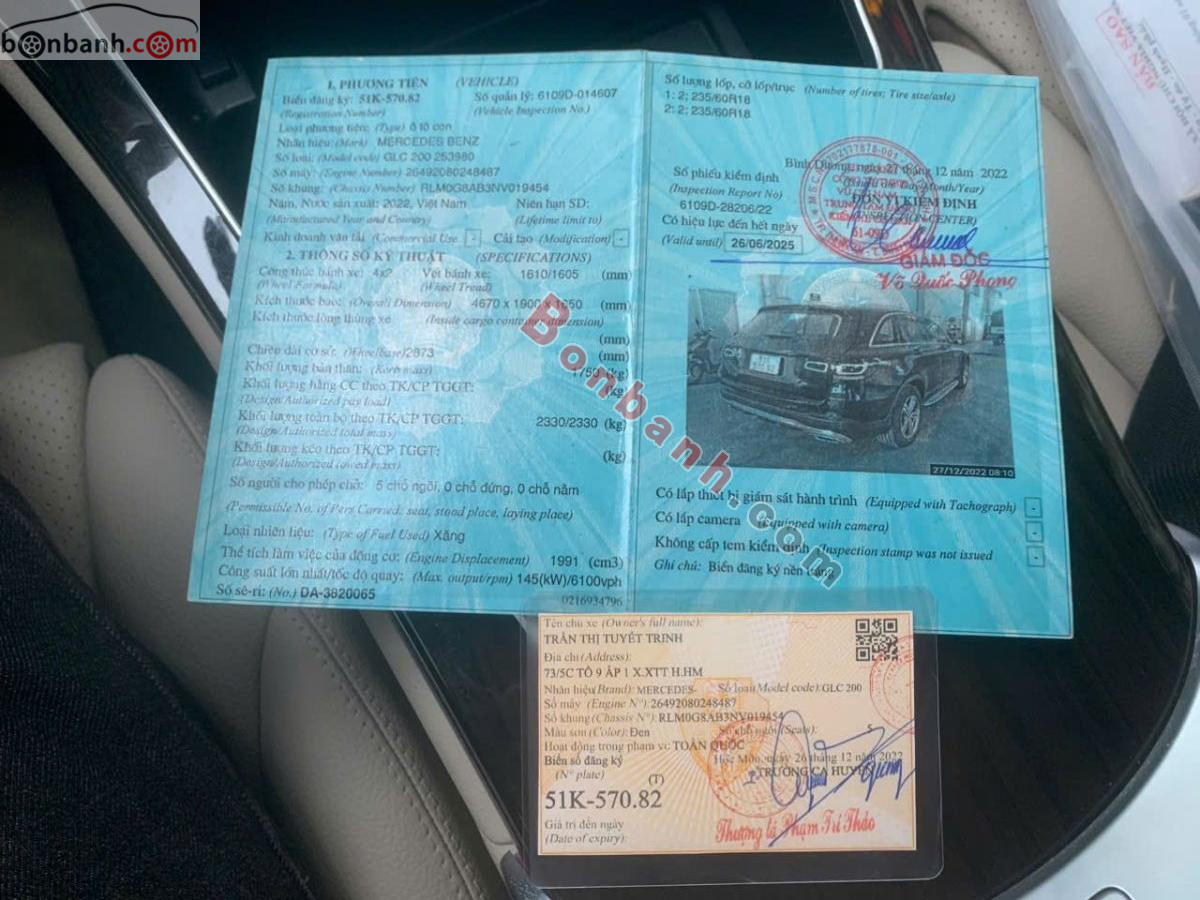 bonbanh.com
1. PHƯƠNG TIỆN (VEHICLE)
Biển đăng ký: 51K-570.82 Số quản lý: 6109D-014607
(Registration Number) (Vehicle Inspection No.)
Loại phương tiện: (Type) ô tô con
Nhãn hiệu: (Mark) MERCEDES BENZ
Số loại: (Model code) GLC 200 253980
Số máy: (Engine Number) 26492080248487
Số khung: (Chassis Number) RLM0G8AB3NV019454
Năm, Nước sản xuất: 2022, Việt Nam Niên hạn SD:
(Manufactured Year and Country) (Lifetime limit to)
Kinh doanh vận tải (Commercial Use) - Cải tạo (Modification) -
2. THÔNG SỐ KỸ THUẬT (SPECIFICATIONS)
Công thức bánh xe: 4x2 Vết bánh xe: 1610/1605 (mm)
(Wheel Formula) (Wheel Tread)
Kích thước bao: (Overall Dimension) 4670 x 1900 x 1650 (mm)
Kích thước lòng thùng xe (Inside cargo container dimension)
(mm)
Chiều dài cơ sở: (Wheelbase) 2873 (mm)
Khối lượng bản thân: (Kerb mass) 1750 (kg)
Khối lượng hàng CC theo TK/CP TGGT: (kg)
(Design/Authorized pay load)
Khối lượng toàn bộ theo TK/CP TGGT: 2330/2330 (kg)
(Design/Authorized total mass)
Khối lượng kéo theo TK/CP TGGT: (kg)
(Design/Authorized towed mass)
Số người cho phép chở: 5 chỗ ngồi, 0 chỗ đứng, 0 chỗ nằm
(Permissible No. of Pers Carried: seat, stood place, laying place)
Loại nhiên liệu: (Type of Fuel Used) Xăng
Thể tích làm việc của động cơ: (Engine Displacement) 1991 (cm3)
Công suất lớn nhất/tốc độ quay: (Max. output/rpm) 145(kW)/6100vph
Số sê-ri: (No.) DA-3820065
0216934796
Số lượng lốp, cỡ lốp/trục (Number of tires; Tire size/axle)
1: 2; 235/60R18
2: 2; 235/60R18
Bình Dương, ngày 27 tháng 12 năm 2022
Số phiếu kiểm định
(Inspection Report No) ĐƠN VỊ KIỂM ĐỊNH
6109D-28206/22 (INSPECTION CENTER)
Có hiệu lực đến hết ngày
(Valid until) 26/06/2025
GIÁM ĐỐC
Võ Quốc Phong
27/12/2022 08:10
Có lắp thiết bị giám sát hành trình (Equipped with Tachograph) -
Có lắp camera (Equipped with camera) -
Không cấp tem kiểm định (Inspection stamp was not issued -
Ghi chú: Biển đăng ký nền trắng
Bonbanh.com
Tên chủ xe (Owner's full name):
TRẦN THỊ TUYẾT TRINH
Địa chỉ (Address):
73/5C TỔ 9 ẤP 1 X.XTT H.HM
Nhãn hiệu(Brand): MERCEDES- Số loại(Model code): GLC 200
Số máy (Engine N°): 26492080248487
Số khung (Chassis N°): RLM0G8AB3NV019454
Màu sơn (Color): Đen Số chỗ ngồi (Seats): 5
Hoạt động trong phạm vi: TOÀN QUỐC
Biển số đăng ký Hóc Môn, ngày 26 tháng 12 năm 2022
(N° plate) TRƯỞNG CA HUYỆN
(T)
51K-570.82
Giá trị đến ngày
(Date of expiry):
Thượng tá Phạm Trí Thảo